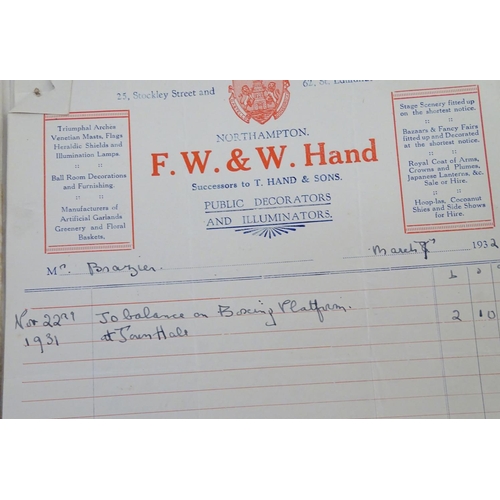 25, Stockley Street and 62, St. Edmund
NORTHAMPTON.
F. W. & W. Hand
SUCCESSORS TO T. HAND & SONS.
PUBLIC DECORATORS
AND ILLUMINATORS.
Triumphal Arches
Venetian Masts, Flags
Heraldic Shields and
Illumination Lamps.
Ball Room Decorations
and Furnishing.
Manufacturers of
Artificial Garlands
Greenery and Floral
Baskets.
Stage Scenery fitted up
on the shortest notice.
Bazaars & Fancy Fairs
fitted up and Decorated
at the shortest notice.
Royal Coat of Arms,
Crowns and Plumes,
Japanese Lanterns, &c.
Sale or Hire.
Hoop-las, Cocoanut
Shies and Side Shows
for Hire.
March 1932
Mr. Brazier
Nov 22nd To balance on Boxing Platform.
1931 at Town Hall 2 10